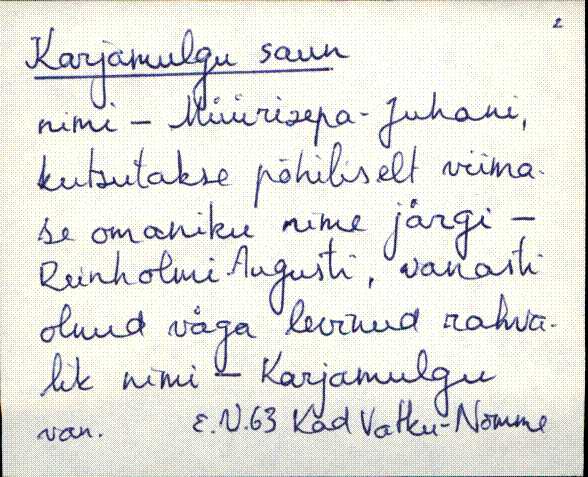 2
Karjamulgu saun
nimi – Müürisepa-Juhani,
kutsutakse põhiliselt viima-
se omaniku nime järgi –
Reinholmi Augusti, vanasti
olnud väga levinud rahva-
lik nimi – Karjamulgu
van. E.V.63 Kad Vatku-Nõmme